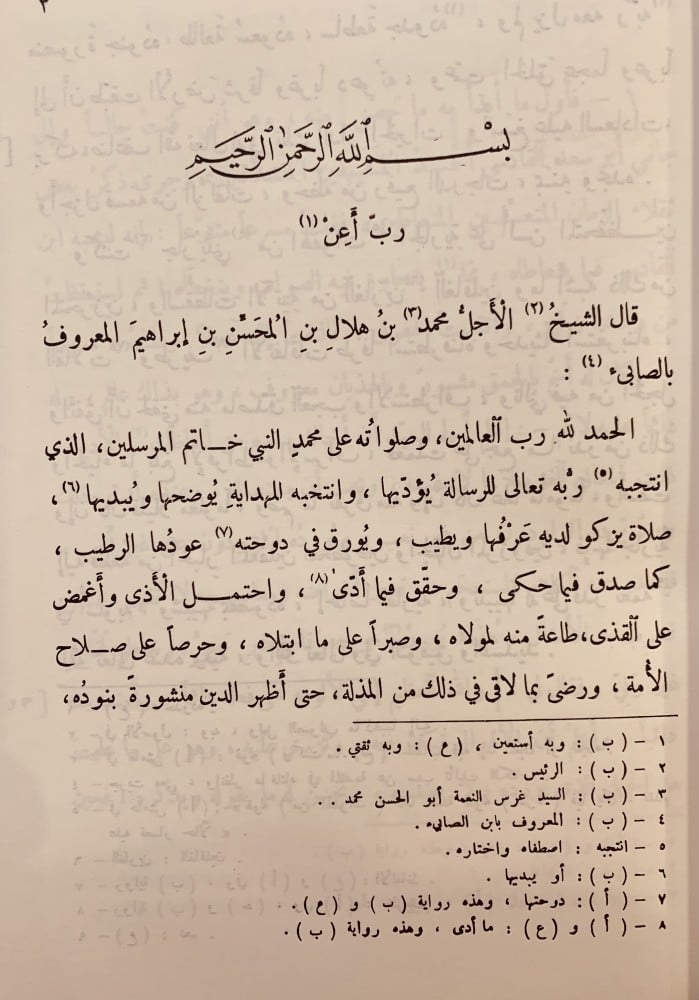 ٣
بسم الله الرحمن الرحيم
ربّ أَعِنْ (١)
قال الشيخُ (٢) الْأَجلُّ محمد (٣) بنُ هلالِ بنِ الْمحَسَّنِ بنِ إبراهيمَ المعروفُ
بالصابىء (٤) :
الحمد لله رب العالمين، وصلواتُه على محمدٍ النبي خاتم المرسلين، الذي
انتجبه (٥) ربُّه تعالى للرسالة يُؤدّيها ، وانتخبه للهدايةِ يُوضحها ويُبديها (٦) ،
صلاة يزكو لديه عَرْفُها ويطيب ، ويُورق في دوحته (٧) عودُها الرطيب ،
كما صدق فيما حكى ، وحقّق فيما أَدّى (٨) ، واحتمل الْأَذى وأَغمض
على القذى، طاعةً منه لمولاه ، وصبراً على ما ابتلاه ، وحرصاً على صلاح
الأُمة ، ورضىً بما لاقى في ذلك من المذلة، حتى أَظهر الدين منشورةً بنودُه،
١ – (ب) : وبه أستعين ، (ع) : وبه ثقتي .
٢ – (ب) : الرئيس .
٣ – (ب) : السيد غرس النعمة أبو الحسن محمد . .
٤ – (ب) : المعروف بابن الصابىء .
٥ – انتجبه : اصطفاه واختاره .
٦ – (ب) : أو يبديها .
٧ – (أ) : دوحتها ، وهذه رواية (ب) و (ع) .
٨ – (أ) و (ع) : ما أدى ، وهذه رواية (ب) .